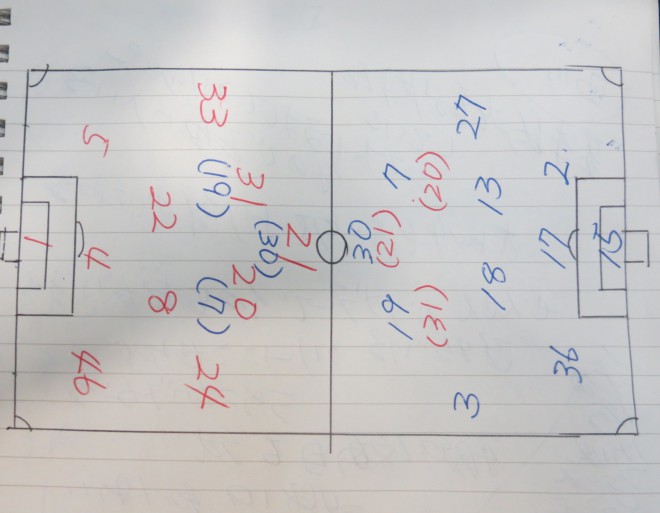 15
2 17 36
27 13 18 3
(20) (31)
7 (21) 19
30
21
31 (30) 20
33 (19) (7) 24
22 8
5 4 46
1